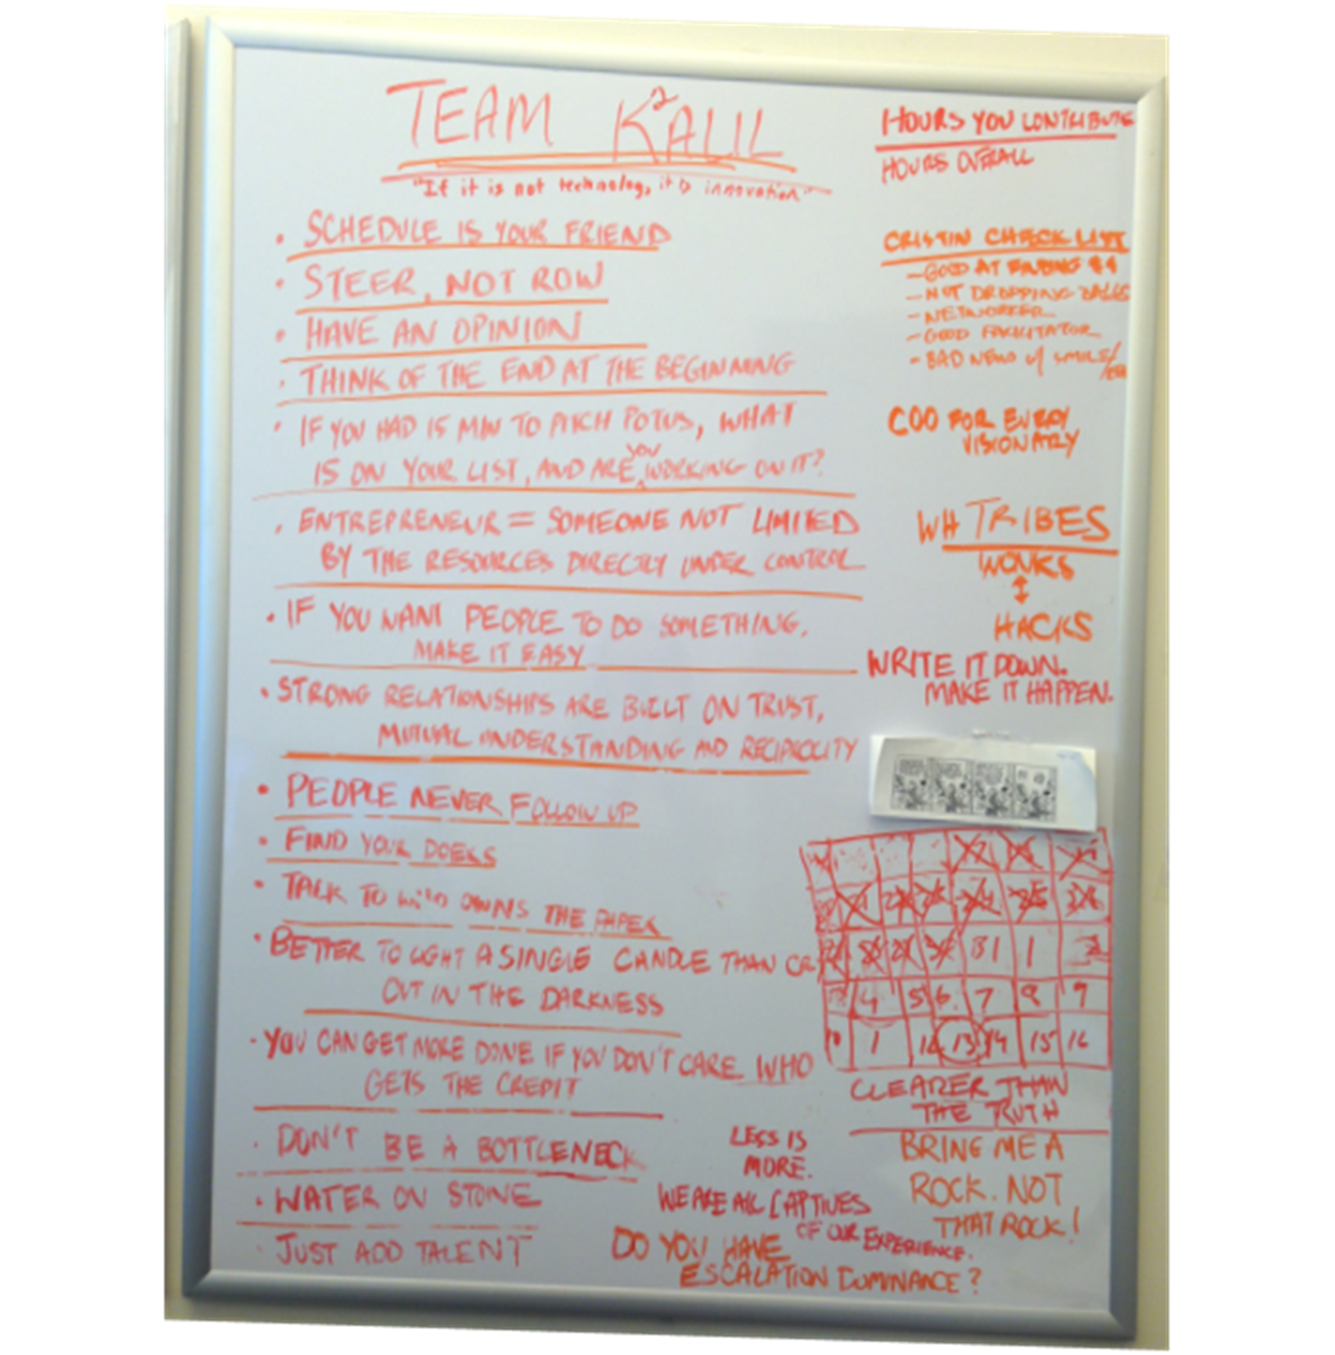 TEAM K²ALIL
"If it is not technology, it is innovation"
• SCHEDULE IS YOUR FRIEND
• STEER, NOT ROW
• HAVE AN OPINION
• THINK OF THE END AT THE BEGINNING
• IF YOU HAD 15 MIN TO PITCH POTUS, WHAT
IS ON YOUR LIST, AND ARE YOU WORKING ON IT?
• ENTREPRENEUR = SOMEONE NOT LIMITED
BY THE RESOURCES DIRECTLY UNDER CONTROL
• IF YOU WANT PEOPLE TO DO SOMETHING,
MAKE IT EASY
• STRONG RELATIONSHIPS ARE BUILT ON TRUST,
MUTUAL UNDERSTANDING AND RECIPROCITY
• PEOPLE NEVER FOLLOW UP
• FIND YOUR DOERS
• TALK TO WHO OWNS THE PAPER
• BETTER TO LIGHT A SINGLE CANDLE THAN CRY
OUT IN THE DARKNESS
• YOU CAN GET MORE DONE IF YOU DON'T CARE WHO
GETS THE CREDIT
• DON'T BE A BOTTLENECK
• WATER ON STONE
• JUST ADD TALENT
HOURS YOU CONTRIBUTE
HOURS OVERALL
CRISTIN CHECKLIST
- GOOD AT FINDING $$
- NOT DROPPING BALLS
- NETWORKER
- GOOD FACILITATOR
- BAD NEWS w/ SMILE/
COO FOR EVERY
VISIONARY
WH TRIBES
WONKS
↕
HACKS
WRITE IT DOWN.
MAKE IT HAPPEN.
31 1
4 5 6 7 8 9
13 14 15 16
CLEARER THAN
THE TRUTH
BRING ME A
ROCK. NOT
THAT ROCK!
LESS IS
MORE.
WE ARE ALL CAPTIVES
OF OUR EXPERIENCE.
DO YOU HAVE
ESCALATION DOMINANCE?